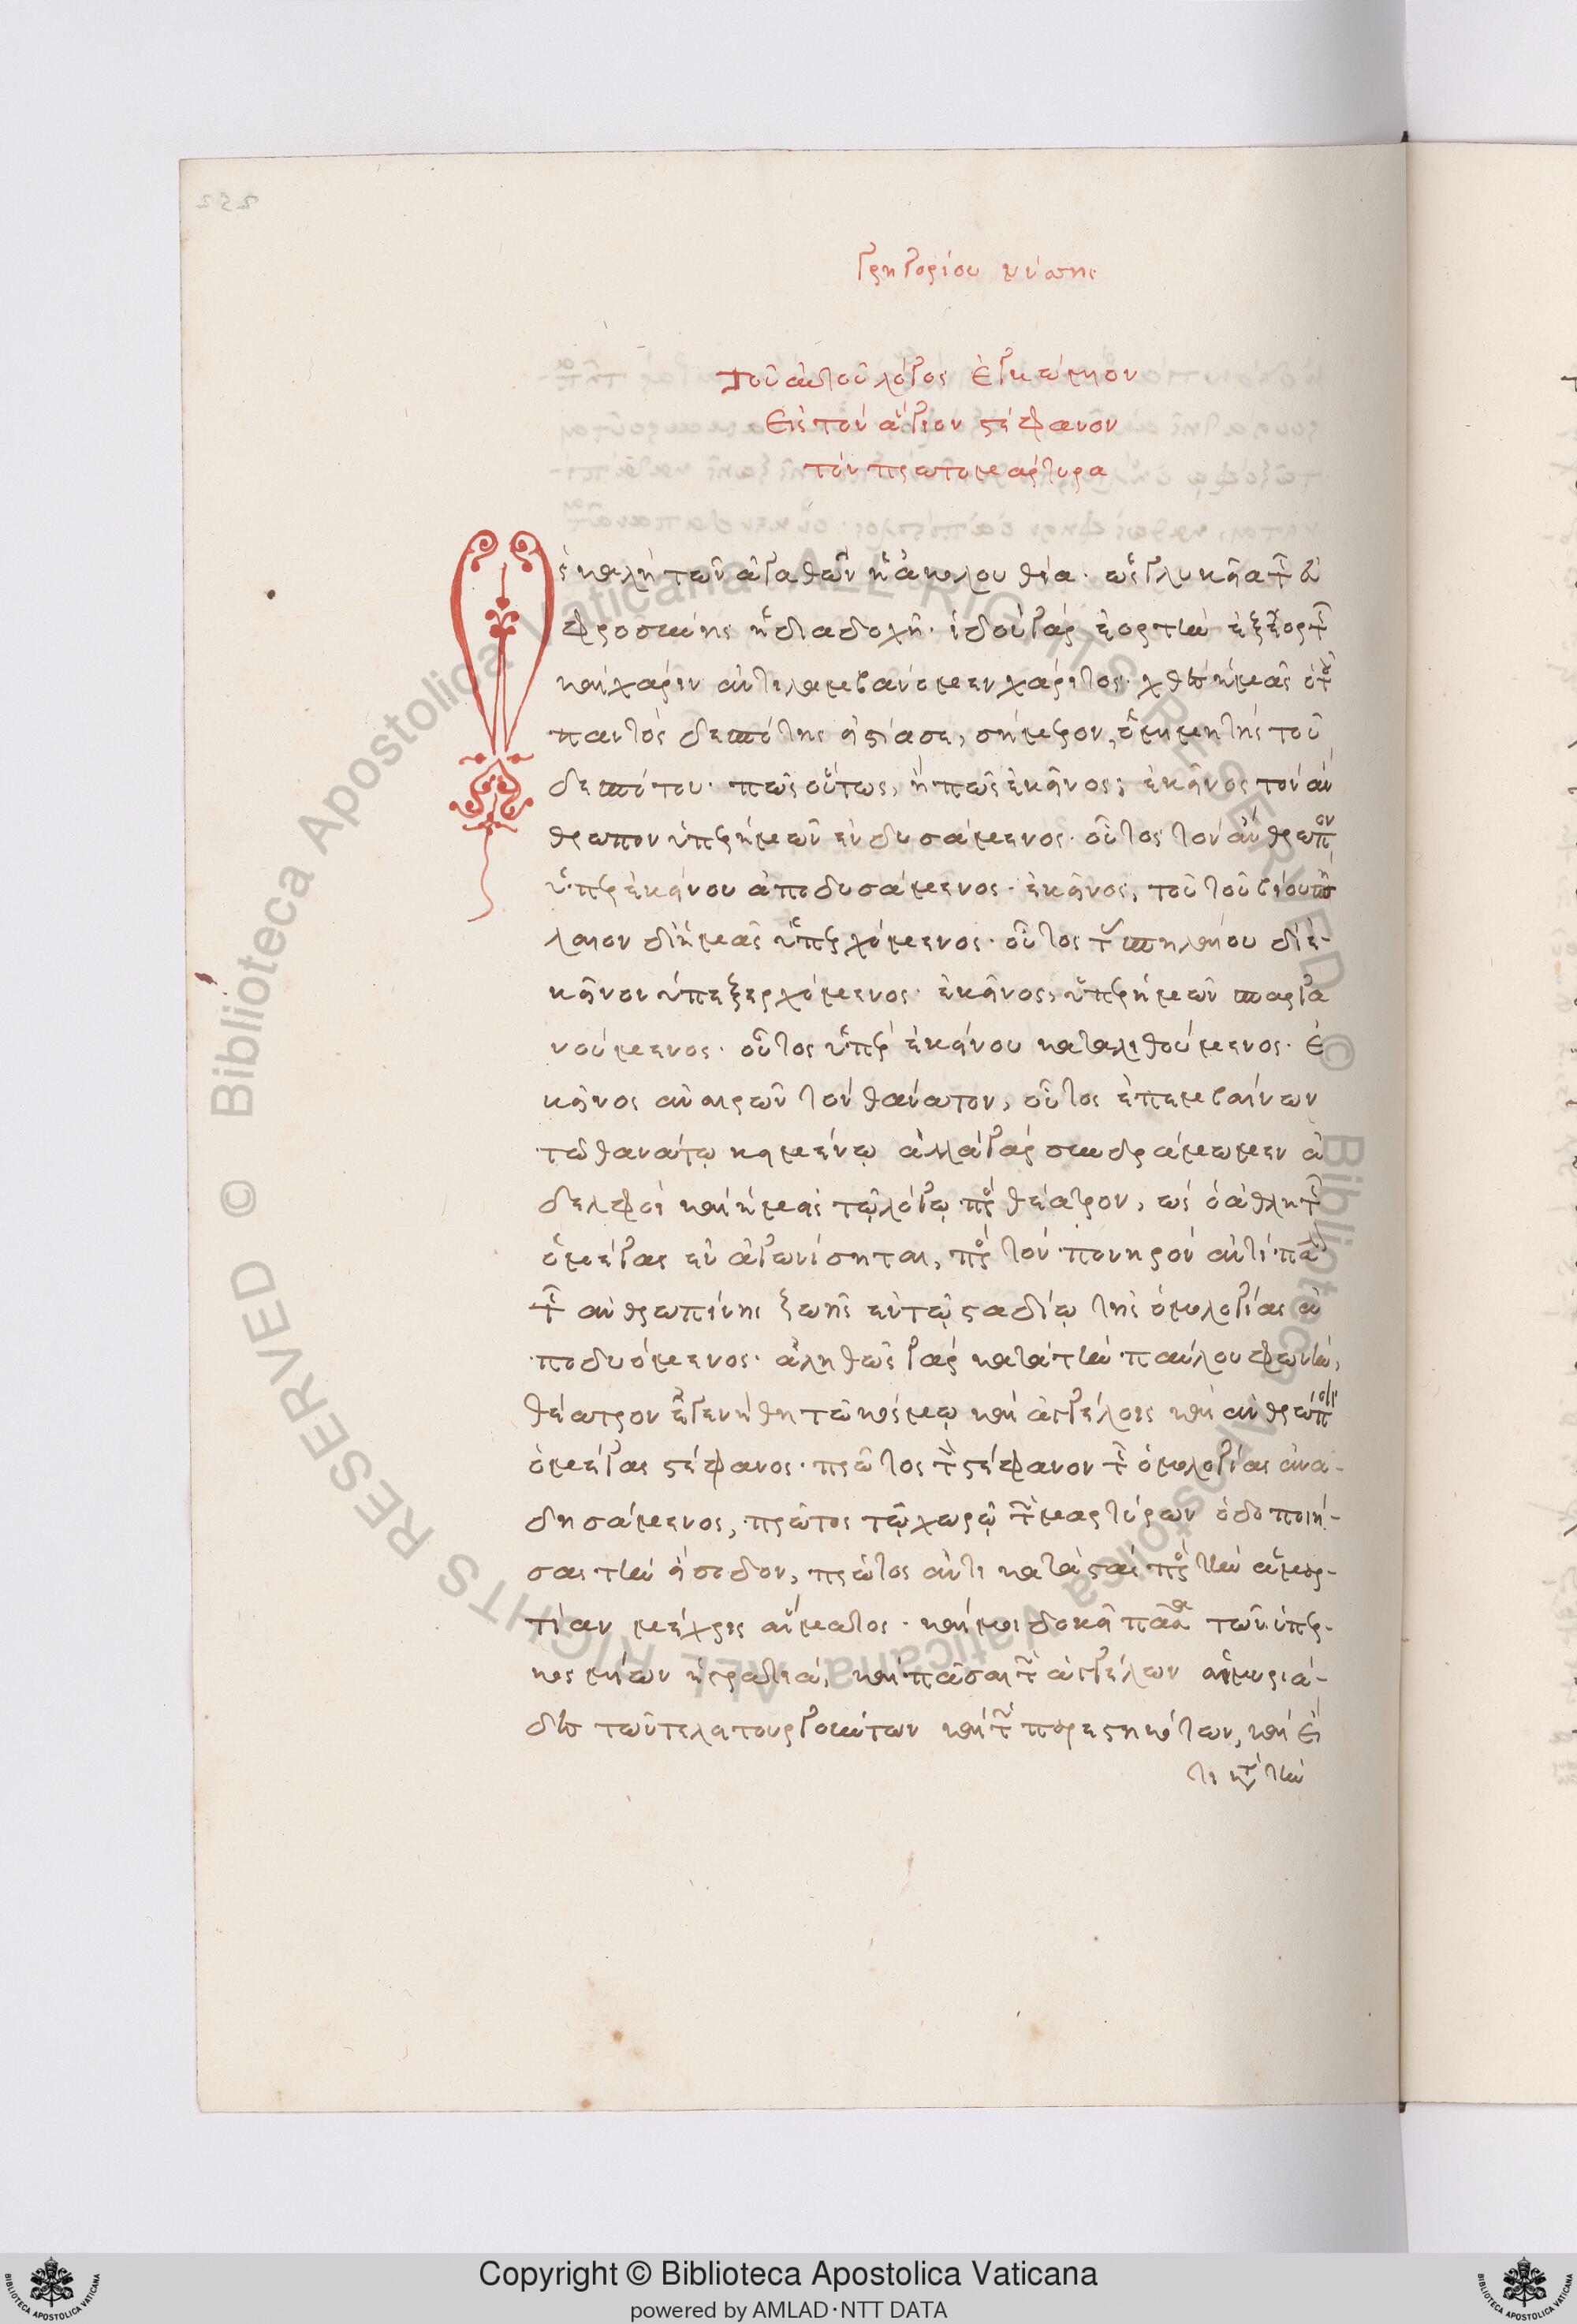 Γρηγορίου νύσσης
Τοῦ αὐτοῦ λόγος ἐγκώμιον
Εἰς τὸν ἅγιον στέφανον
τὸν πρωτομάρτυρα
Ὡς καλὴ τῶν ἀγαθῶν ἡ ἀκολουθία· ὡς γλυκεῖα τῆς εὐ
φροσύνης ἡ διαδοχή· ἰδοὺ γὰρ ἑορτὴν ἐξ ἑορτῆς
καὶ χάριν ἀντιλαμβάνομεν χάριτος· χθὲς ἡμᾶς ὁ τοῦ
παντὸς δεσπότης εἱστίασε, σήμερον, ὁ μιμητὴς τοῦ
δεσπότου· πῶς οὗτος, ἢ πῶς ἐκεῖνος; ἐκεῖνος τὸν ἄν
θρωπον ὑπὲρ ἡμῶν ἐνδυσάμενος· οὗτος τὸν ἄνθρωπον
ὑπὲρ ἐκείνου ἀποδυσάμενος· ἐκεῖνος, τοῦ τοῦ βίου σπή
λαιον δι' ἡμᾶς ὑπερχόμενος· οὗτος τοῦ σπηλαίου δι' ἐ-
κεῖνον ὑπεξερχόμενος· ἐκεῖνος, ὑπὲρ ἡμῶν σπαργα
νούμενος· οὗτος ὑπὲρ ἐκείνου καταλιθούμενος· ἐ
κεῖνος ἀναιρῶν τὸν θάνατον, οὗτος ἐπεμβαίνων
τῷ θανάτῳ κειμένῳ ἀλλὰ γὰρ συνδράμωμεν ἀ
δελφοὶ καὶ ἡμεῖς τῷ λόγῳ πρὸς θέατρον, ὡς ὁ ἀθλητὴς
ὁ μέγας ἐναγωνίσηται, πρὸς τὸν πονηρὸν ἀντίπαλον
τῆς ἀνθρωπίνης ζωῆς ἐν τῷ σταδίῳ τῆς ὁμολογίας ἀ
ποδυόμενος· ἀληθῶς γὰρ κατὰ τὴν παύλου φωνὴν,
θέατρον ἐγενήθη τῷ κόσμῳ καὶ ἀγγέλοις καὶ ἀνθρώποις
ὁ μέγας στέφανος· πρῶτος τὸν στέφανον τῆς ὁμολογίας ἀνα-
δησάμενος, πρῶτος τῷ χωρῷ τῶν μαρτύρων ὁδοποιή-
σας τὴν εἴσοδον, πρῶτος ἀντικαταστὰς πρὸς τὴν ἁμαρ-
τίαν μέχρις αἵματος· καί μοι δοκεῖ πᾶσα τῶν ὑπερ-
κοσμίων ἡ στρατιά, καὶ πᾶσαι τῶν ἀγγέλων αἱ μυριά-
δες τῶν τε λειτουργούντων καὶ τῶν παρεστηκότων, καὶ εἴ
τι κατὰ τὴν